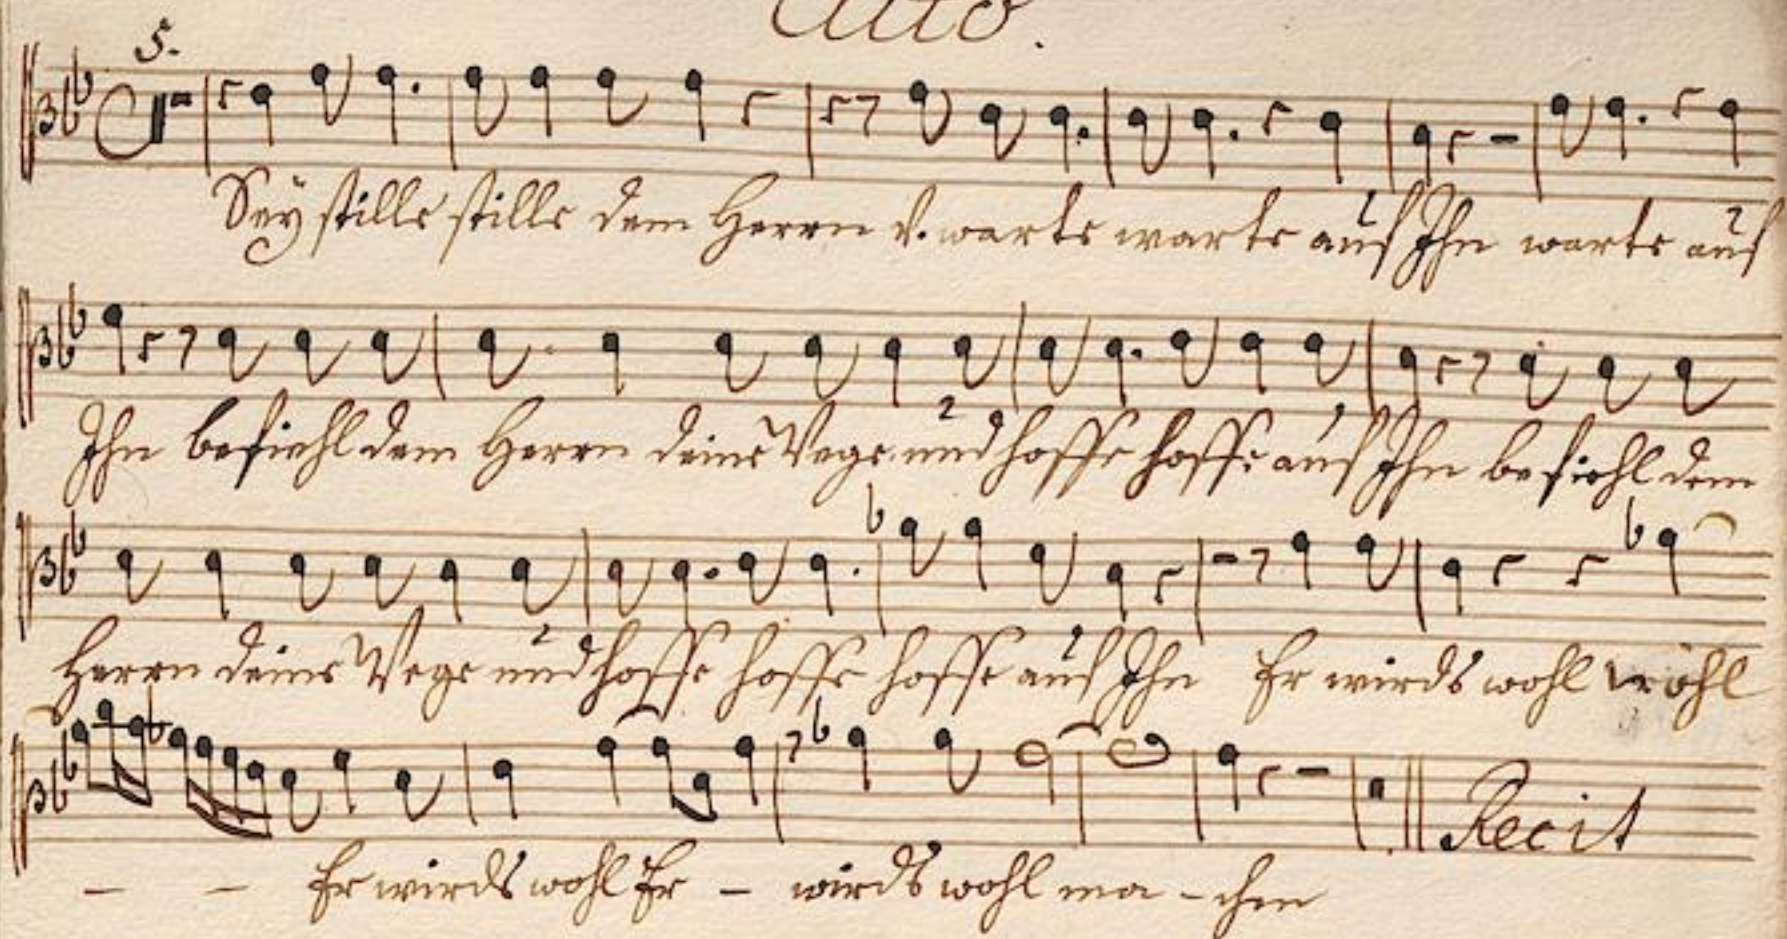 Alto.
5.
Seÿ stille stille dem Herrn v. warte warte auf Ihn warte auf
Ihn befiehl dem Herrn deine Wege und hoffe hoffe auf Ihn befiehl dem
Herrn deine Wege und hoffe hoffe hoffe auf Ihn Er wirds wohl wohl
– – Er wirds wohl Er – wirds wohl ma – chen
Recit